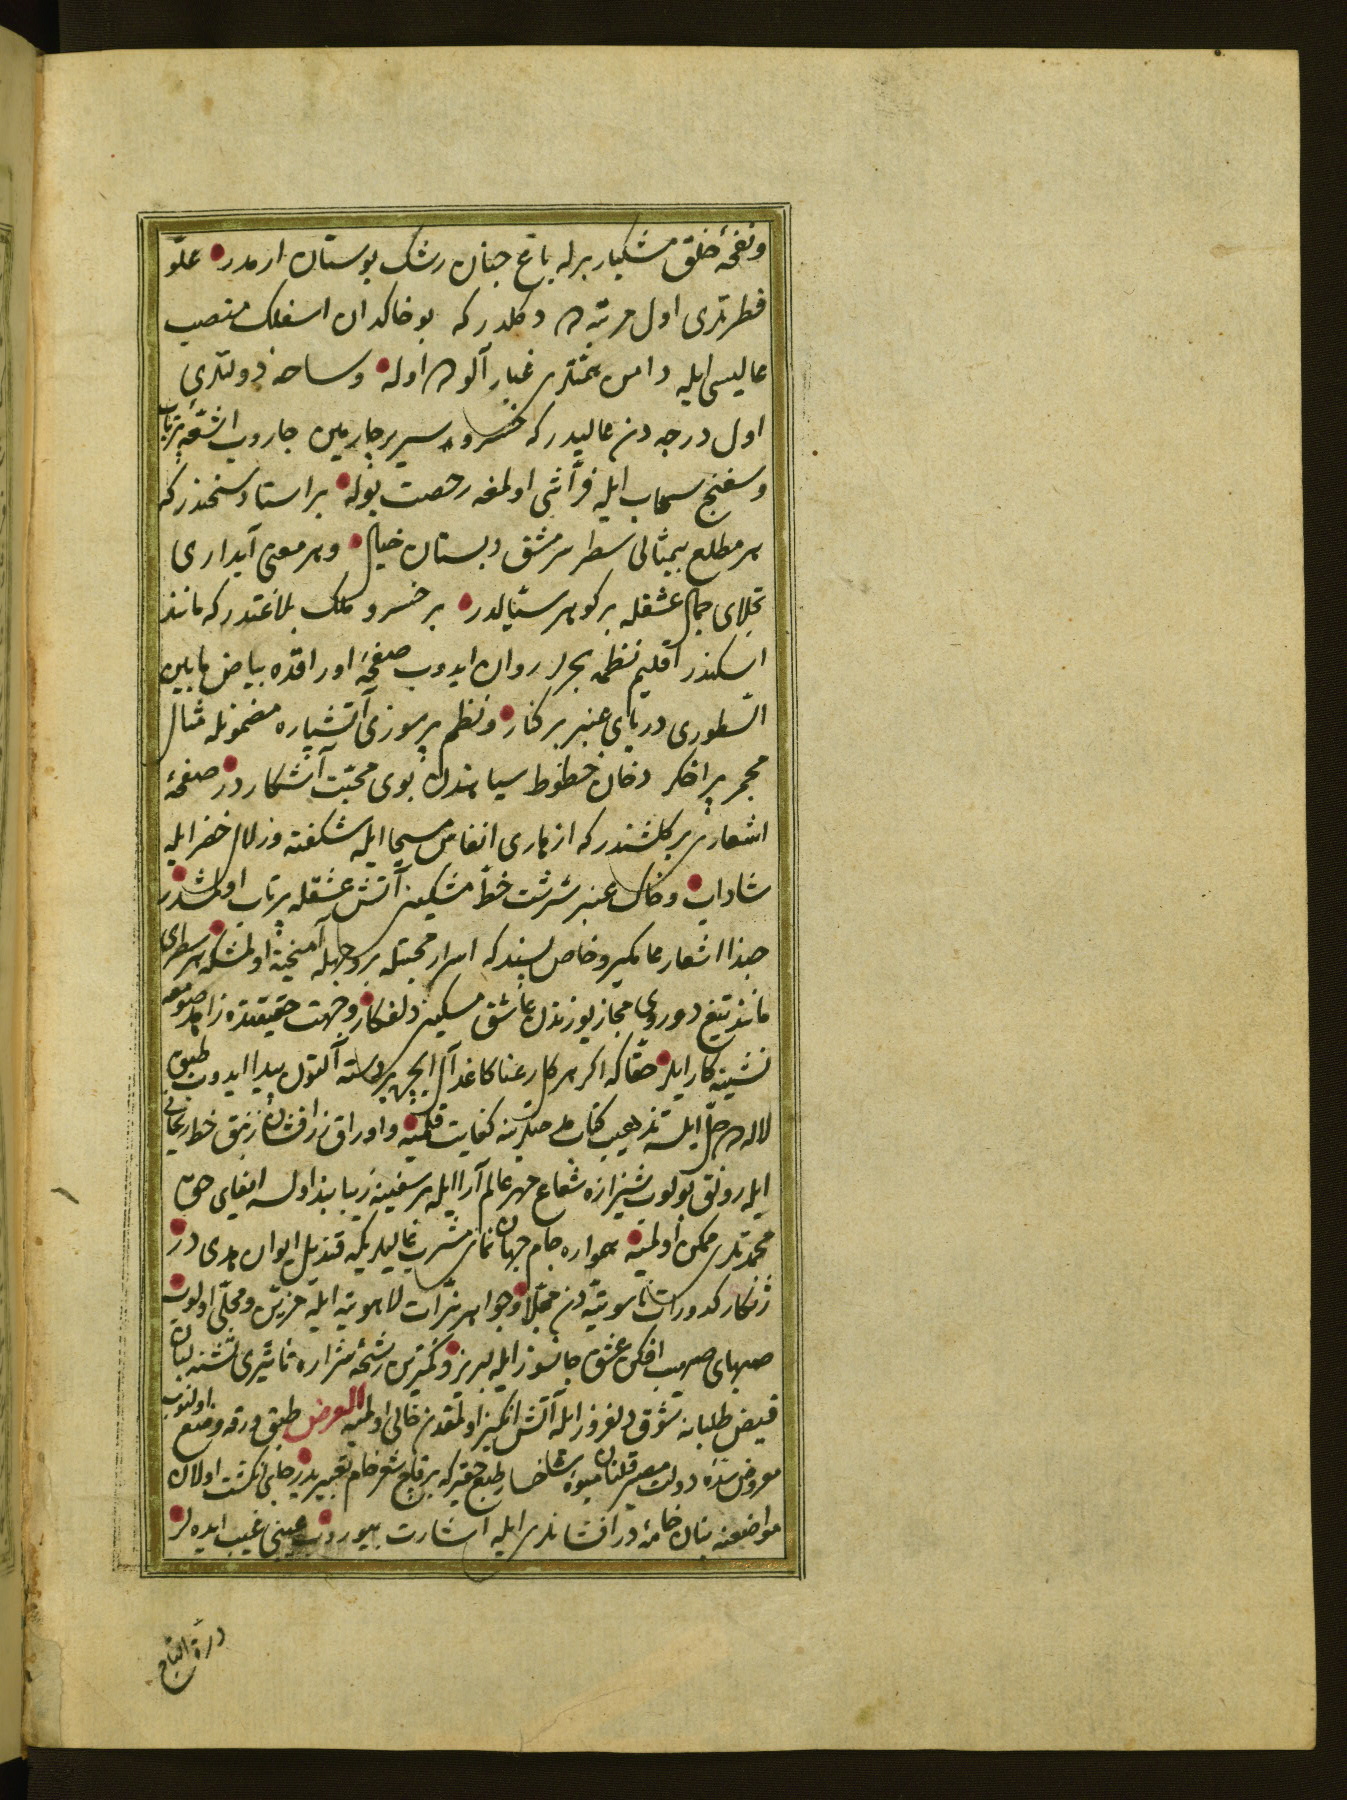 ونفحهٔ خلق مشکبار برله باغ جنان رشک بوستان ارمدر علوّ
فطرتلری اول مرتبه ده دکلدر که بو خاکدان اسفلک منصب
عالیسی ایله دامن همتلری غبار آلوده اوله وساحهٔ دولتلری
اول درجه دن عالیدر که خسرو سریر چارمین جاروب اشعهٔ پرتاب
وسفنج سحاب ایله فرّاشی اولمغه رخصت بوله بر استاد سخندر که
هر مطلع بیمثالی سطر سرمشق دبستان خیال وهر معنی آبداری
تجلای جمال عشقله بر کوهر سیّالدر بر خسرو ملک بلاغتدر که مانند
اسکندر اقلیم نظمه بحرلر روان ایدوب صفحهٔ اوراقده بیاض مابین
السّطوری دریای عنبر بر کنار ونظم پر سوزی آتشپاره مضمونله مثال
مجمر پر اخکر دخان خطوط سیاهندن بوی محبّت آشکار در صفحهٔ
اشعاری بر کلشندر که ازهاری انفاس مسیحا ایله شکفته وزلال خضر ایله
شاداب وخاک عنبر سرشت خطّ مشکین آتش عشقله پرتاب اولمشدر
حبذا اشعار عالمکیر وخاص پسند که اسرار محبتله بر وجهله آمیخته اولمشکه هر سطری
مانند تیغ دوروی مجاز یوزندن عاشق مسکین دلفکار وجهت حقیقتده زاهد صومعه
نشینه کار ایلر حقّا که اکر هر کل رعنا کاغد آل ایچره بر دسته آلتون پیدا ایدوب طبق
لاله ده حل ایلسه تذهیب کتاب بلاغتلرینه کفایت قلمیه واوراق زرافشان زنبق خط ریحانی
ایله رونق بولوب شیرازه شعاع مهر عالم آرا ایله هر سفینه زیبا بند اولسه ایفای حق
محمدتلری ممکن اولمیه همواره جام جهان نمای مشرب عالیلری که قندیل ایوان هدی در
ژنکار کدورات ناسوتیه دن مجلّا وجواهر نثرات لاهوتیه ایله مزیّن ومحلّی اولوب
صهبای صهیب افکن عشق جانسوز ایله لبریز وکمترین رشحهٔ شراره تاثیری تشنه لبان
فیض طلبانه شوق دلفروز ایله آتش انکیز اولمقدن خالی اولمیه المعروض طبق ورقه وضع اولنوب
معروض سدّه دولت مصیر قلنان میوهٔ شاخسار طبع حقیر که بر قاچ شعر خام تعبیر یدر چلبی انکشت اولان
مواضعنه بنان خامهٔ درافشانلری ایله اشارت بیوروب عینی غیب ایده لر
درة التاج